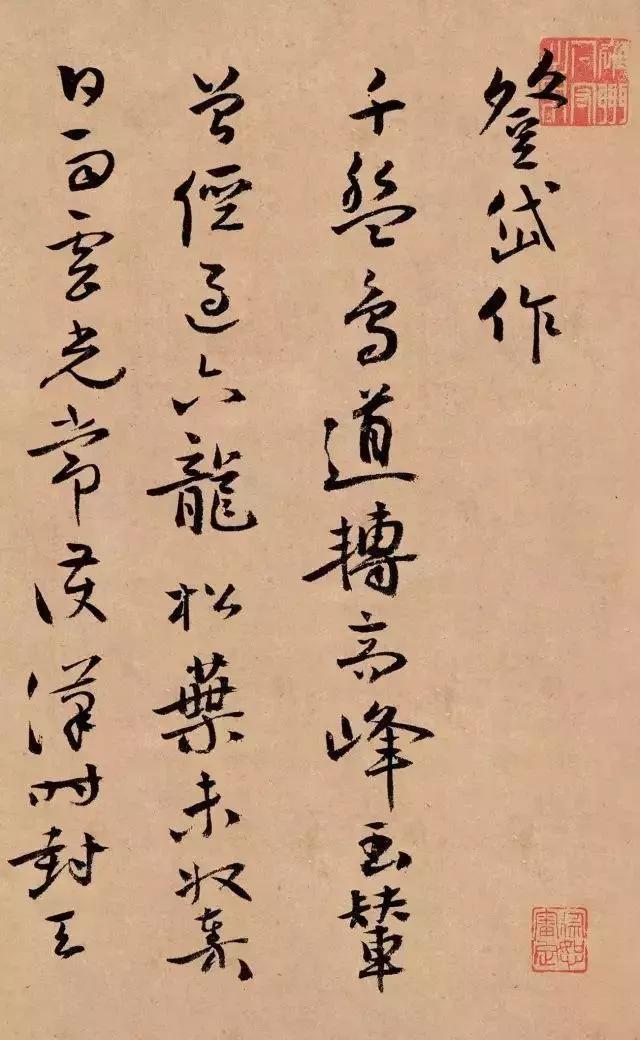 登岱作
千盤鳥道轉高峰玉輦
曾經過六龍松葉未收秦
日雨雲光常護漢時封天